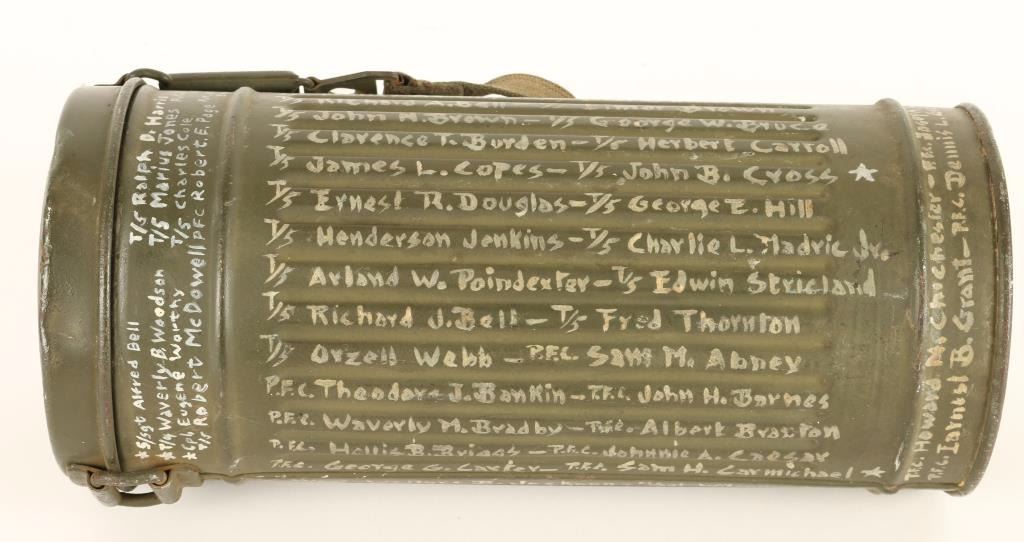 T/5 Richard A. Bell
T/5 John H. Brown - T/5 George W. Bruce
T/5 Clarence T. Burden - T/5 Herbert Carroll
T/5 James L. Copes - T/5 John B. Cross ★
T/5 Ernest R. Douglas - T/5 George E. Hill
T/5 Henderson Jenkins - T/5 Charlie L. Madric Jr.
T/5 Avland W. Poindexter - T/5 Edwin Stricland
T/5 Richard J. Bell - T/5 Fred Thornton
T/5 Orzell Webb - P.F.C. Sam M. Abney
P.F.C. Theodore J. Bankin - P.F.C. John H. Barnes
P.F.C. Waverly M. Bradby - P.F.C. Albert Braxton
P.F.C. Hollis B. Briggs - P.F.C. Johnnie A. Caesar
P.F.C. George G. Carter - P.F.C. Sam H. Carmichael ★
★ S/Sgt Alfred Bell
★ T/4 Waverly B. Woodson
★ Cpl Eugene Worthy
T/5 Robert McDowell PFC Robert E. Page
T/5 Ralph D. Harris
T/5 Marius Jones
T/5 Charles Cole
P.F.C. Howard M. Chochester - P.F.C.
P.F.C. B. Grant - P.F.C. Dennis